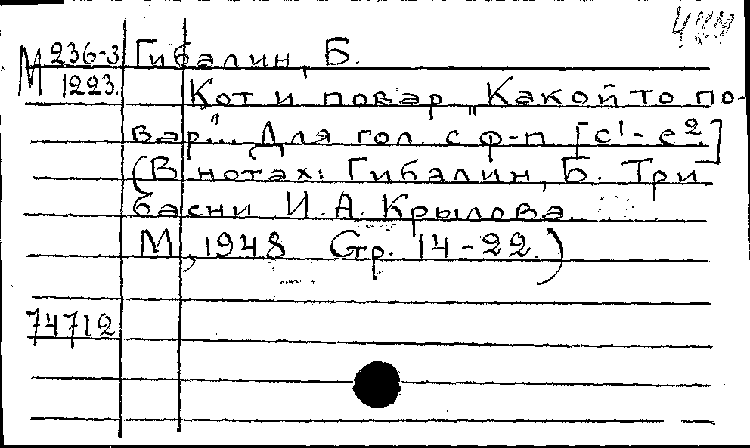 М 236-3 Гибалин, Б.
1223.
Кот и повар „Какой то по-
вар"... Для гол. с ф-п [c¹-e².]
(В нотах: Гибалин, Б. Три
басни И. А. Крылова
М., 1948 Стр. 14-22.)
74712